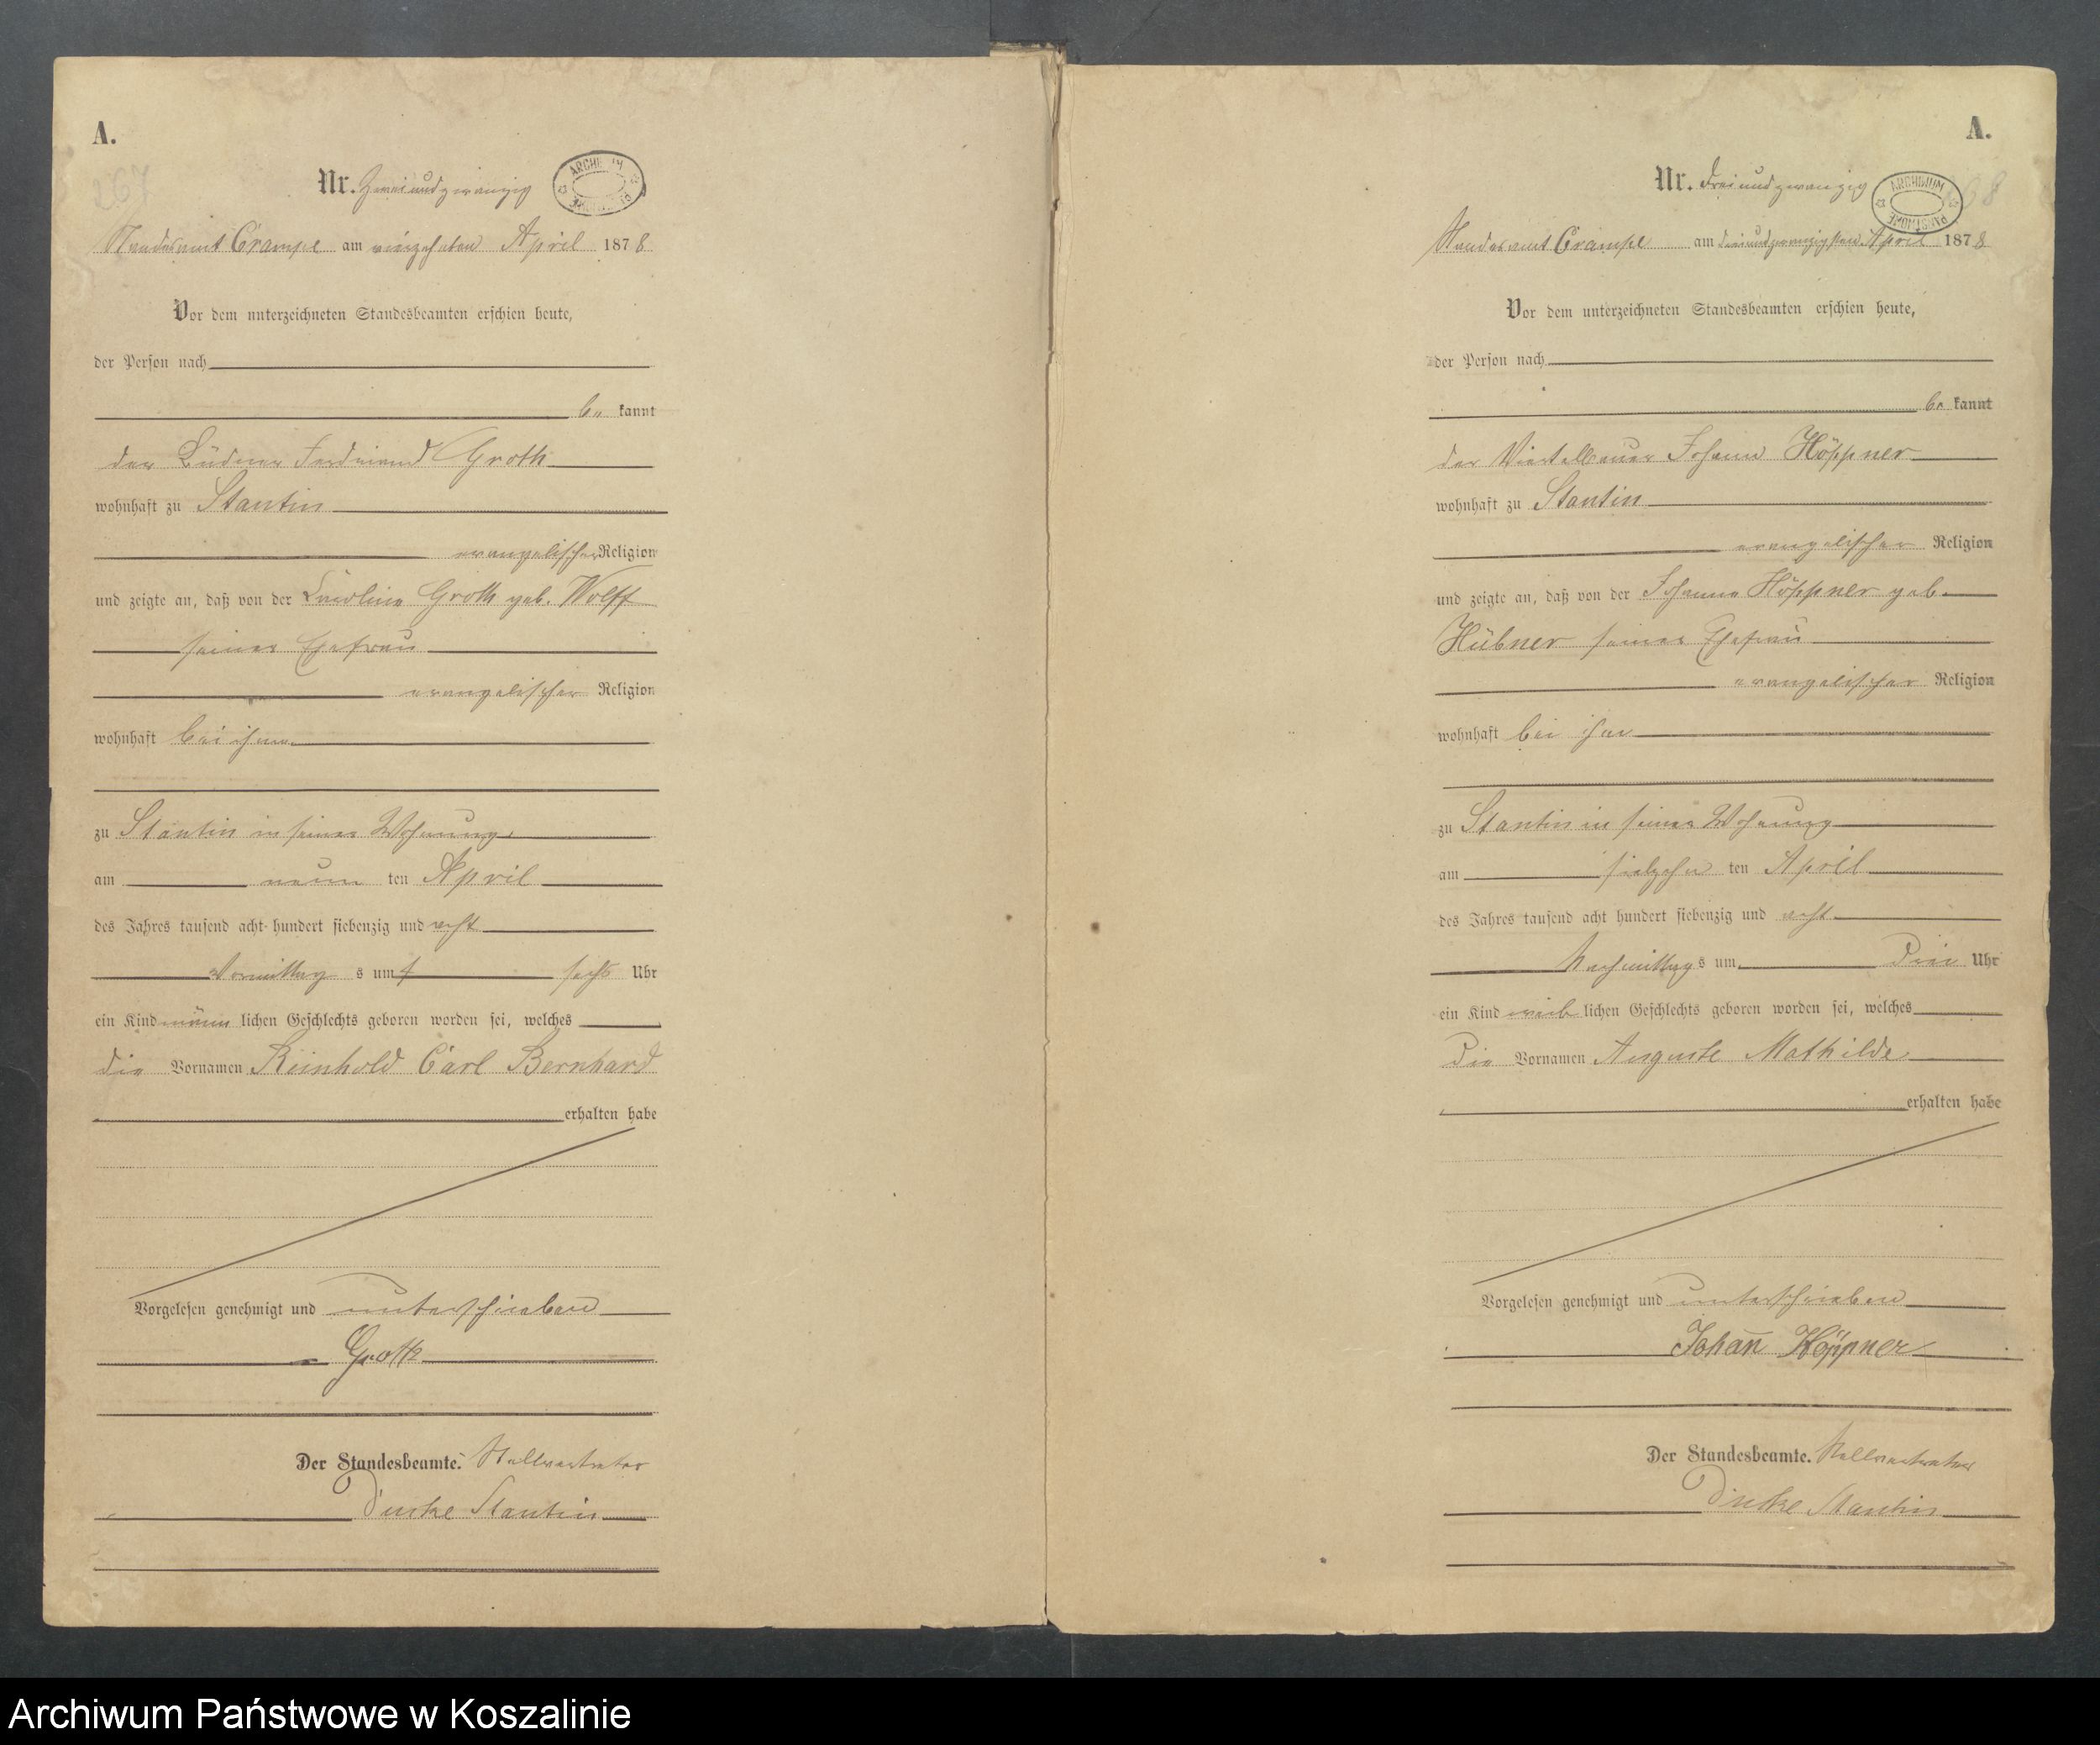 A.
267
Nr. Zweiundzwanzig
ARCHIWUM
Standesamt Crampe am vierzehnten April 1878
Vor dem unterzeichneten Standesbeamten erschien heute,
der Person nach
be kannt
der Büdner Ferdinand Groth
wohnhaft zu Stantin
evangelischer Religion
und zeigte an, daß von der Karoline Groth geb. Wolff
seiner Ehefrau
evangelischer Religion
wohnhaft bei ihm
zu Stantin in seiner Wohnung
am neun ten April
des Jahres tausend acht hundert siebenzig und acht
Vormittag s um sechs Uhr
ein Kind männ lichen Geschlechts geboren worden sei, welches
die Vornamen Reinhold Carl Bernhard
erhalten habe
Vorgelesen genehmigt und unterschrieben
Groth
Der Standesbeamte. Stellvertreter
Stantin
A.
268
Nr. Dreiundzwanzig
ARCHIWUM PAŃSTWOWE
Standesamt Crampe am dreiundzwanzigsten April 1878
Vor dem unterzeichneten Standesbeamten erschien heute,
der Person nach
be kannt
der Viertelbauer Johann Höppner
wohnhaft zu Stantin
evangelischer Religion
und zeigte an, daß von der Johanna Höppner geb.
Hübner seiner Ehefrau
evangelischer Religion
wohnhaft bei ihm
zu Stantin in seiner Wohnung
am siebzehn ten April
des Jahres tausend acht hundert siebenzig und acht
Nachmittags um drei Uhr
ein Kind weib lichen Geschlechts geboren worden sei, welches
die Vornamen Auguste Mathilde
erhalten habe
Vorgelesen genehmigt und unterschrieben
Johan̄ Höppner
Der Standesbeamte. Stellvertreter
Stantin
Archiwum Państwowe w Koszalinie